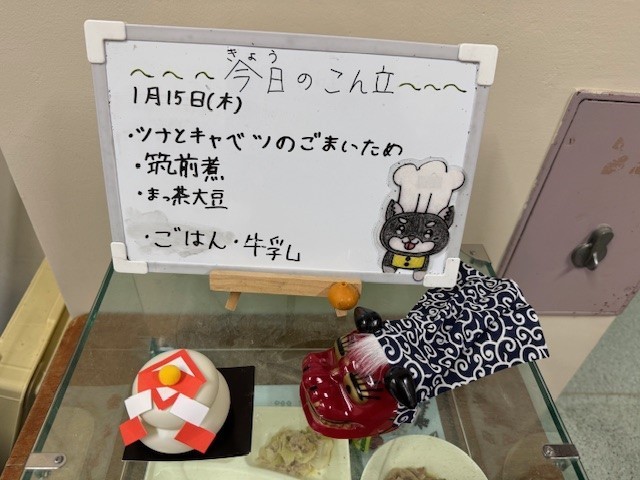 きょう
～～～今日のこん立～～～
1月15日(木)
・ツナとキャベツのごまいため
・筑前煮
・まっ茶大豆
・ごはん・牛乳